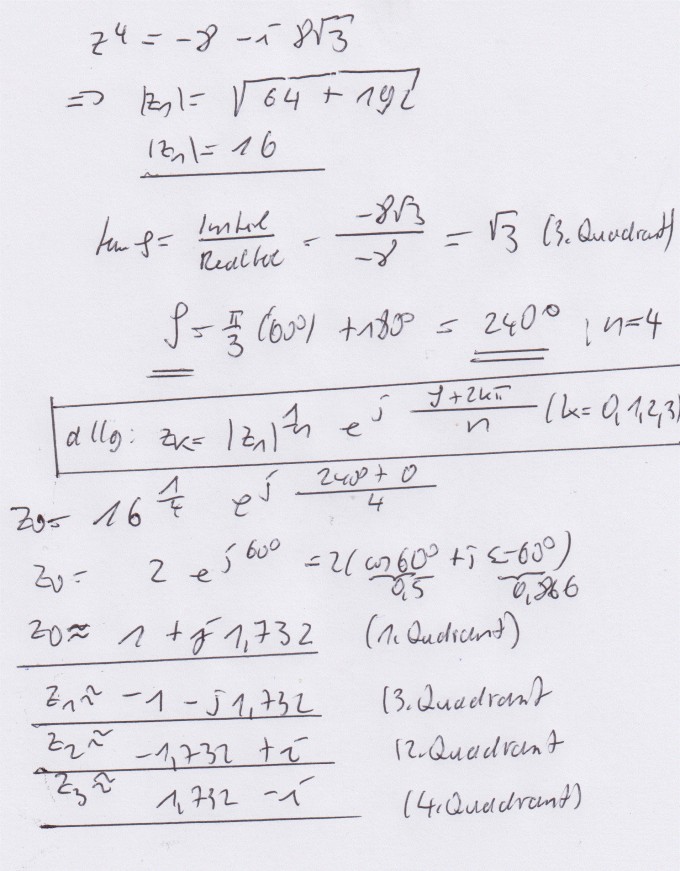 z⁴ = -8 - i 8√3
=> |z₁| = √(64 + 192)
|z₁| = 16
tan φ = Imteil/Realteil = -8√3/-8 = √3 (3. Quadrant)
φ = π/3 (60°) + 180° = 240° ; n=4
allg: zk = |z₁|^(1/n) e^(j (φ+2kπ)/n) (k = 0,1,2,3)
z0 = 16^(1/4) e^(j (240°+0)/4)
z0 = 2 e^(j 60°) = 2(cos 60° + j sin 60°)
0,5 0,866
z0 ≈ 1 + j 1,732 (1. Quadrant)
z₁ ≈ -1 - j 1,732 (3. Quadrant
z₂ ≈ -1,732 + i (2. Quadrant
z₃ ≈ 1,732 - i (4. Quadrant)